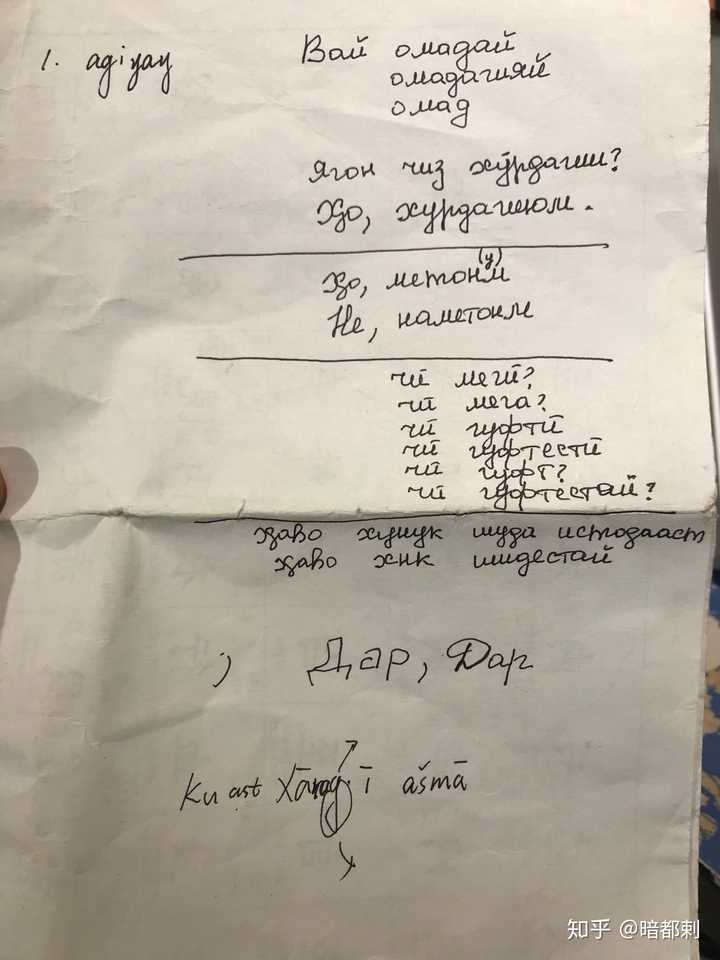 1. agiyay
Вай омадай
омадагияй
омад
Ягон чиз хӯрдагиш?
Ҳо, хурдагиюм.
Ҳо, метонм (у)
Не, наметонм
чӣ мегӣ?
чӣ мега?
чӣ гуфтӣ
чӣ гуфтестӣ
чӣ гуфт?
чӣ гуфтестай?
ҳаво хунук шуда истодааст
ҳаво хнк шидестай
; Дар, Дар
Ku ast ī ašmā
知乎 @暗都剌